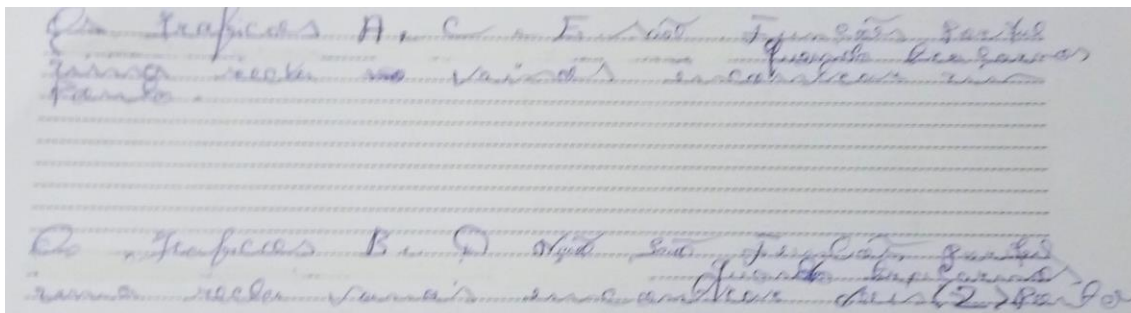 Os graficos A, C e E são Funções porque
quando traçamos
uma recta vamos encontrar um
Ponto.
Os graficos B e D não são Função porque
quando traçarmos
uma recta vamos encontrar dois (2) Ponto